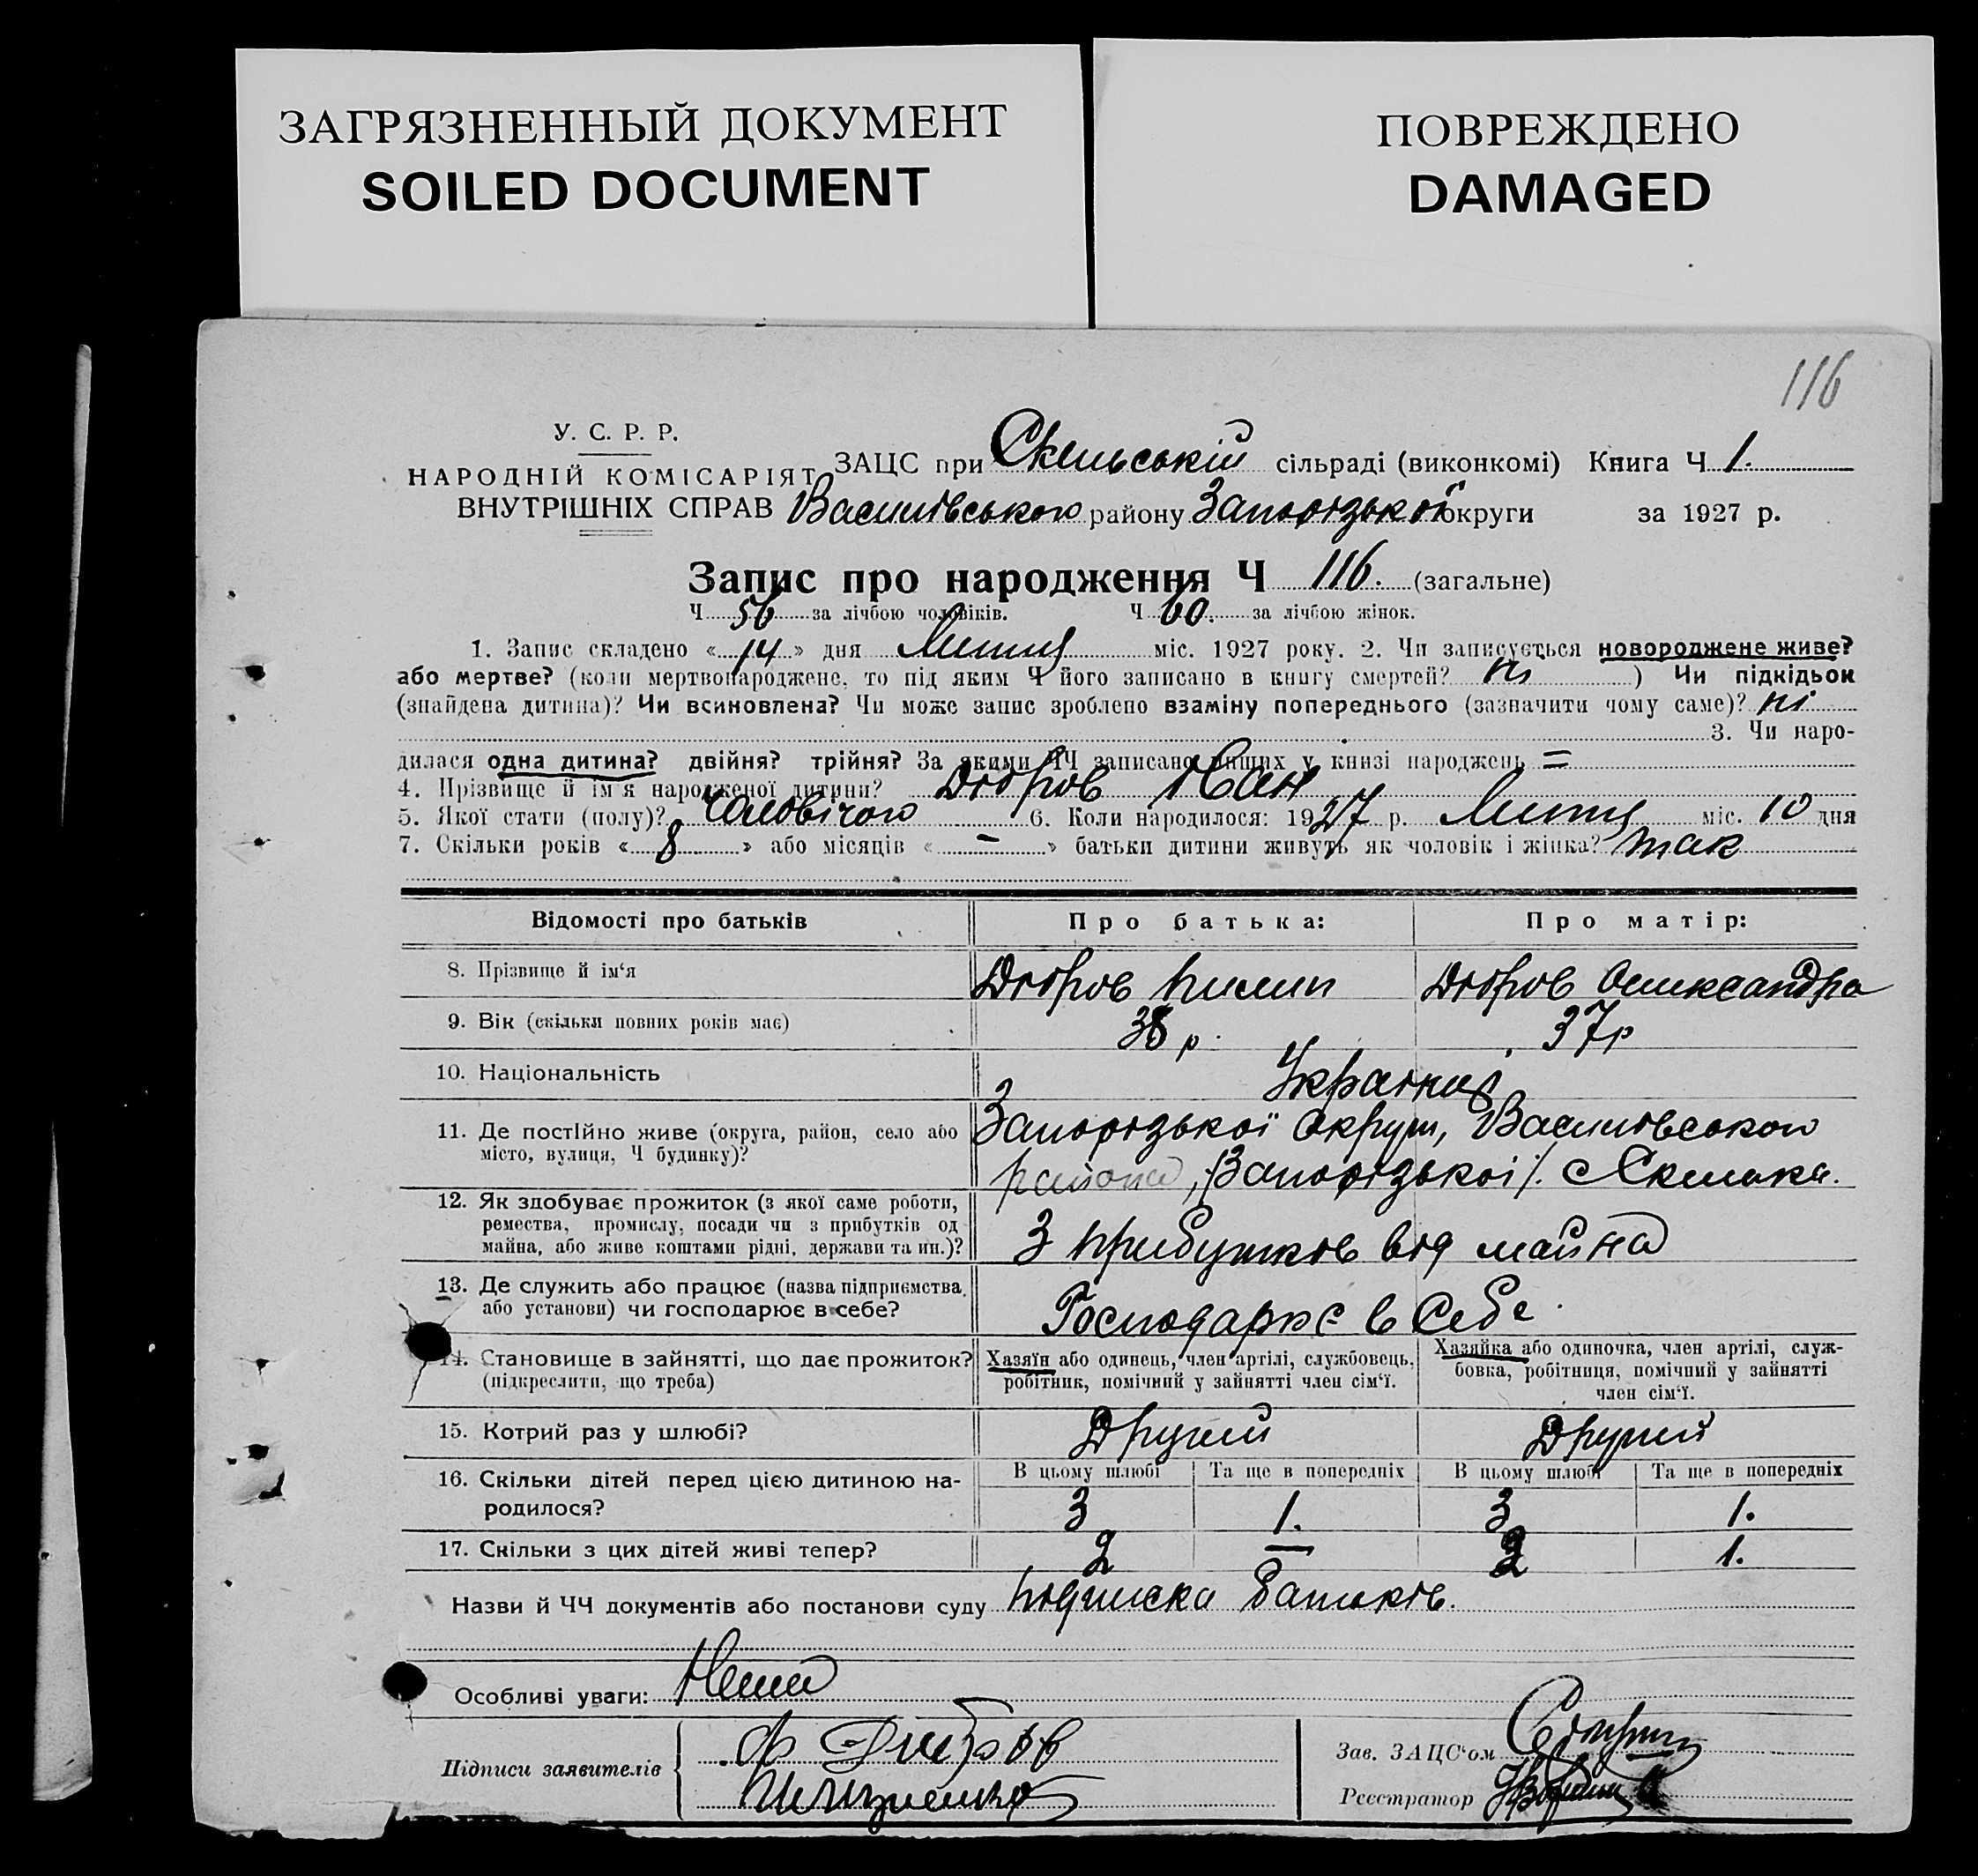 ЗАГРЯЗНЕННЫЙ ДОКУМЕНТ
SOILED DOCUMENT
ПОВРЕЖДЕНО
DAMAGED
116
У. С. Р. Р.
НАРОДНІЙ КОМІСАРІЯТ
ВНУТРІШНІХ СПРАВ
ЗАЦС при Скельській сільраді (виконкомі) Книга Ч 1.
Василівського району Запорізької округи за 1927 р.
Запис про народження Ч 116. (загальне)
Ч 56 за лічбою чоловіків. Ч 60. за лічбою жінок.
1. Запис складено « 14 » дня Липня міс. 1927 року. 2. Чи записується новороджене живе?
або мертве? (коли мертвонароджене, то під яким Ч його записано в книгу смертей? ні ) Чи підкідьок
(знайдена дитина)? Чи всиновлена? Чи може запис зроблено взаміну попереднього (зазначити чому саме)? ні
3. Чи наро-
дилася одна дитина? двійня? трійня? За якими ЧЧ записано инших у книзі народжень =
4. Прізвище й ім'я народженої дитини? Дібров Іван
5. Якої стати (полу)? Чоловічого 6. Коли народилося: 1927 р. Липня міс. 10 дня
7. Скільки років « 8 » або місяців « - » батьки дитини живуть як чоловік і жінка? так
Відомості про батьків Про батька: Про матір:
8. Прізвище й ім'я Дібров Пилип Дібров Олександра
9. Вік (скільки повних років має) 38 р. 37 р
10. Національність
11. Де постійно живе (округа, район, село або Запорізької Округи, Василівського
місто, вулиця, Ч будинку)? района, /Запорізької/. с Скелька.
12. Як здобуває прожиток (з якої саме роботи,
ремества, промислу, посади чи з прибутків од
майна, або живе коштами рідні, держави та ин.)? З прибутків від майна
13. Де служить або працює (назва підприємства,
або установи) чи господарює в себе? Господарює в Себе
14. Становище в зайнятті, що дає прожиток?
(підкреслити, що треба)
Хазяїн або одинець, член артілі, службовець,
робітник, помічний у зайнятті член сім'ї.
Хазяйка або одиночка, член артілі, служ-
бовка, робітниця, помічний у зайнятті
член сім'ї.
15. Котрий раз у шлюбі? Другий Другий
16. Скільки дітей перед цією дитиною на-
родилося?
В цьому шлюбі Та ще в попередніх В цьому шлюбі Та ще в попередніх
3 1. 3 1.
17. Скільки з цих дітей живі тепер? 2 — 2 1.
Назви й ЧЧ документів або постанови суду Підписка батьків.
Особливі уваги: Нема
Підписи заявителів
Зав. ЗАЦС'ом
Реєстратор